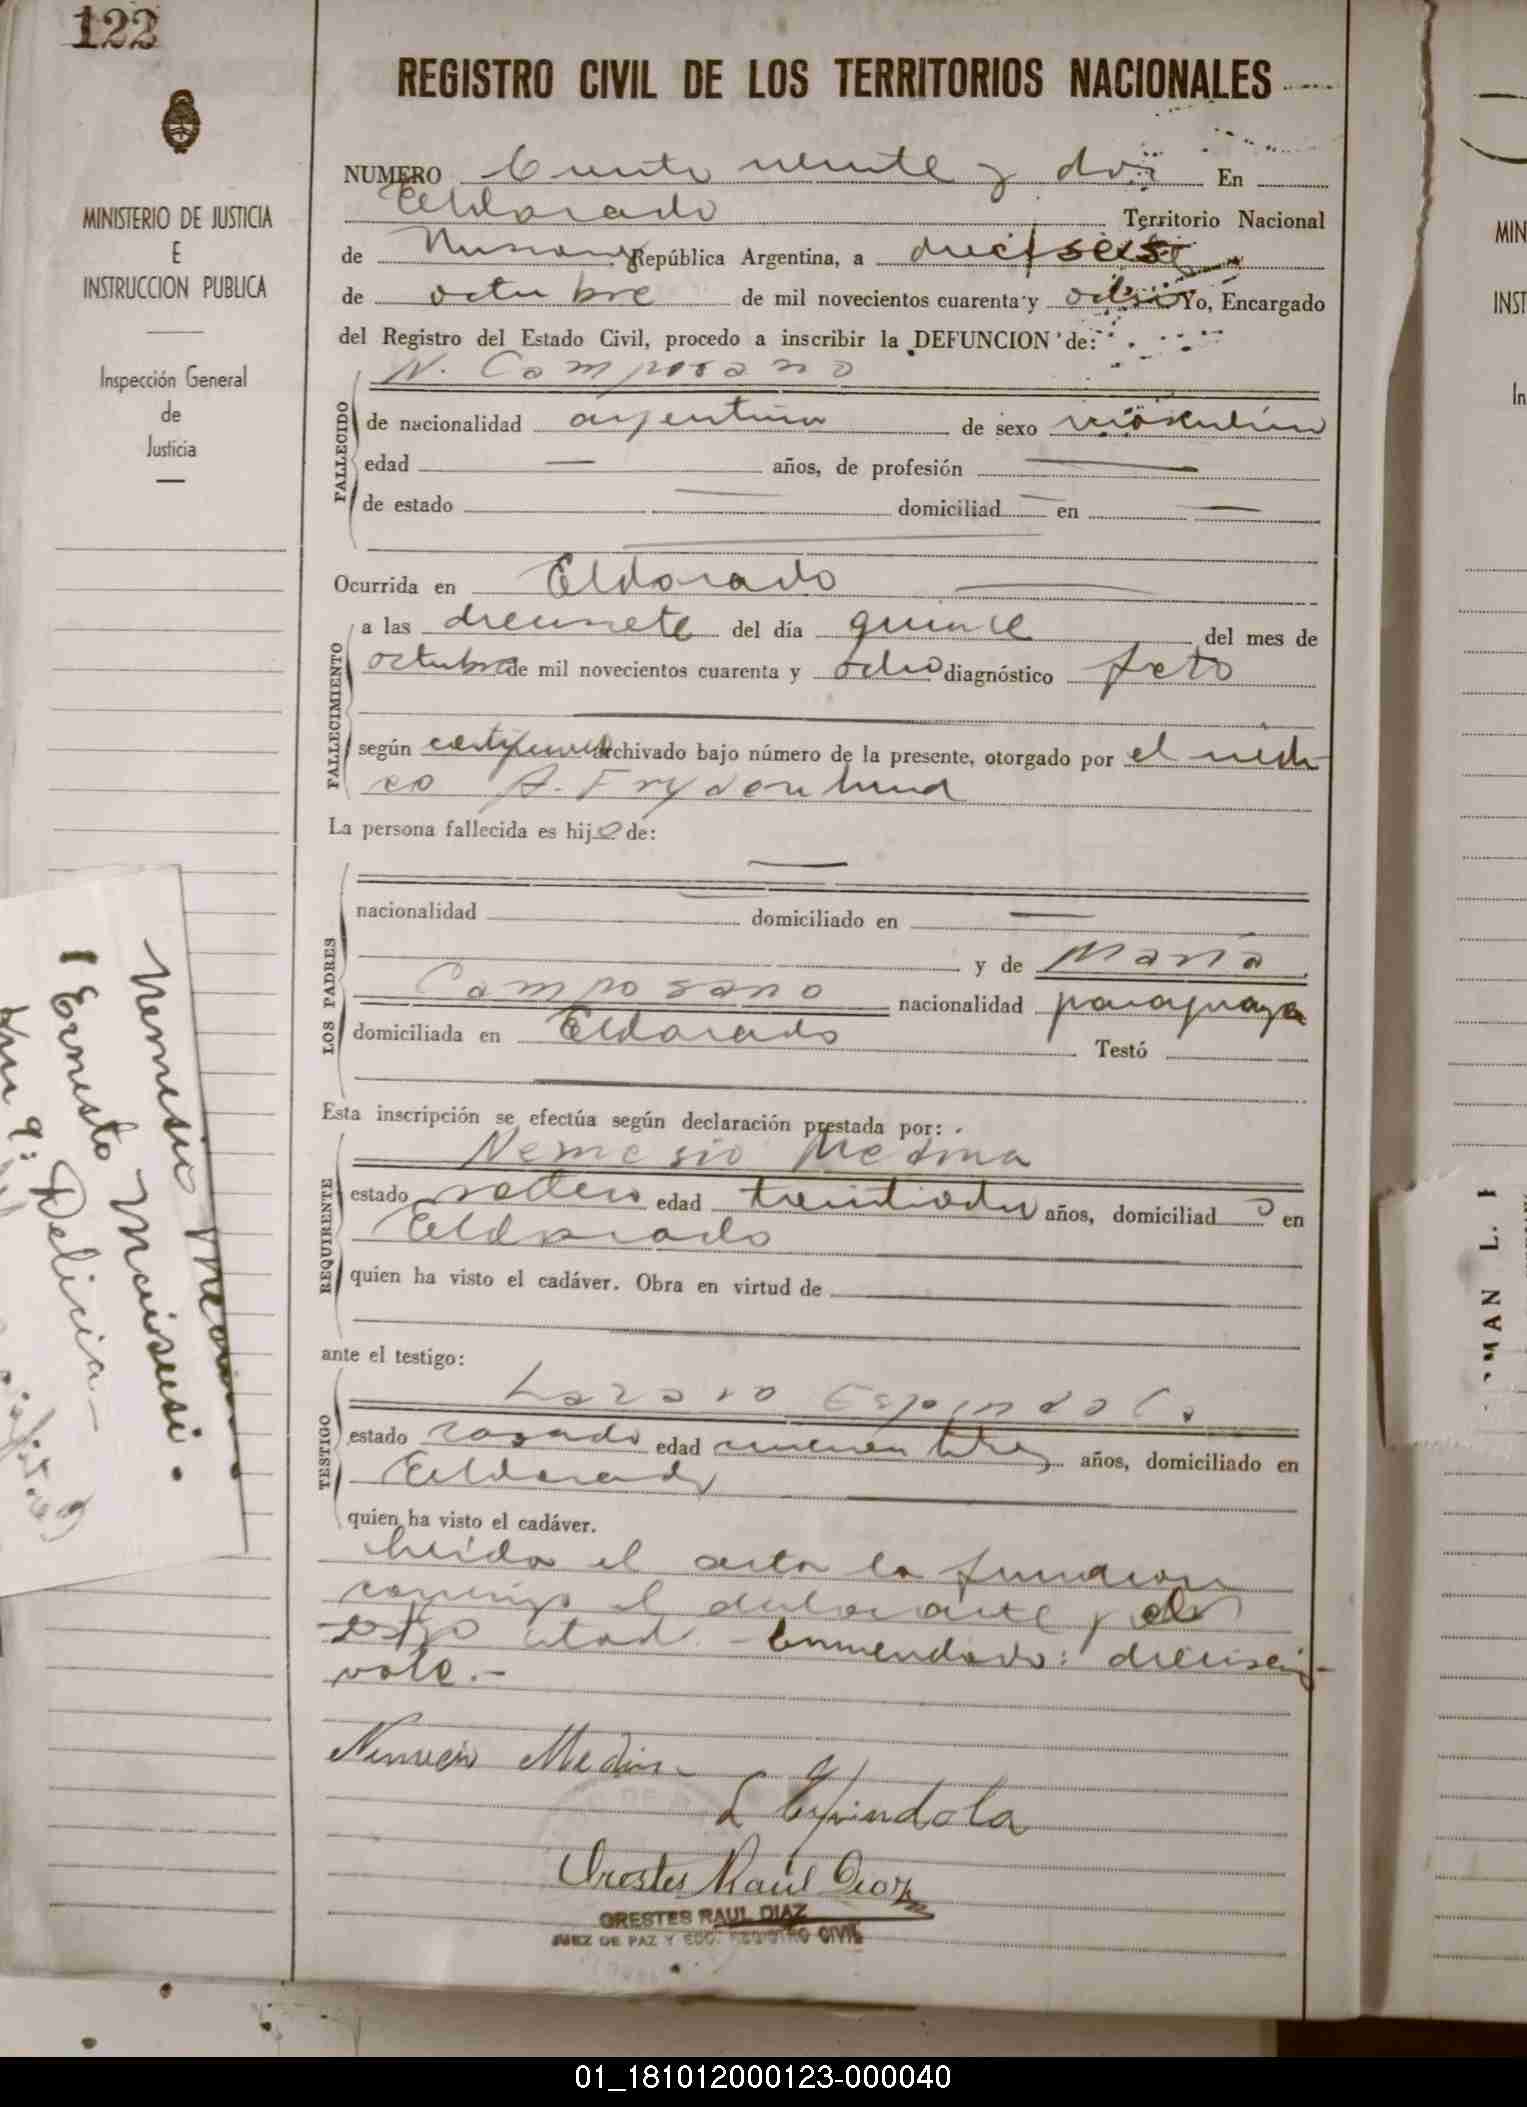 122
REGISTRO CIVIL DE LOS TERRITORIOS NACIONALES
MINISTERIO DE JUSTICIA
E
INSTRUCCION PUBLICA
Inspección General
de
Justicia
NUMERO Ciento veinte y dos En
Eldorado Territorio Nacional
de Misiones República Argentina, a dieciseis
de octubre de mil novecientos cuarenta y ocho Yo, Encargado
del Registro del Estado Civil, procedo a inscribir la DEFUNCION de:
N. Composano
FALLECIDO
de nacionalidad argentina de sexo masculino
edad — años, de profesión —
de estado — domiciliad — en —
Ocurrida en Eldorado
FALLECIMIENTO
a las diecisiete del día quince del mes de
octubre de mil novecientos cuarenta y ocho diagnóstico feto
según certificado archivado bajo número de la presente, otorgado por el médi
co A. Frydenlund
La persona fallecida es hijo de:
LOS PADRES
nacionalidad domiciliado en —
y de María
Composano nacionalidad paraguaya
domiciliada en Eldorado Testó
Esta inscripción se efectúa según declaración prestada por:
REQUIRENTE
Nemesio Medina
estado soltero edad treintiocho años, domiciliado en
Eldorado
quien ha visto el cadáver. Obra en virtud de
ante el testigo:
TESTIGO
Lazaro Espindola
estado casado edad cuarentitres años, domiciliado en
Eldorado
quien ha visto el cadáver.
Leida el acta la firmaron
conmigo el declarante y el
testigo citad. - Enmendado: dieciseis-
vale.-
Nemecio Medina
L Espindola
Orestes Raúl Diaz
ORESTES RAUL DIAZ
JUEZ DE PAZ Y ECO. REGISTRO CIVIL
Nemesio
Ernesto
Km 9: Delicia -
MIN
INST
In
MAN L.
01_181012000123-000040